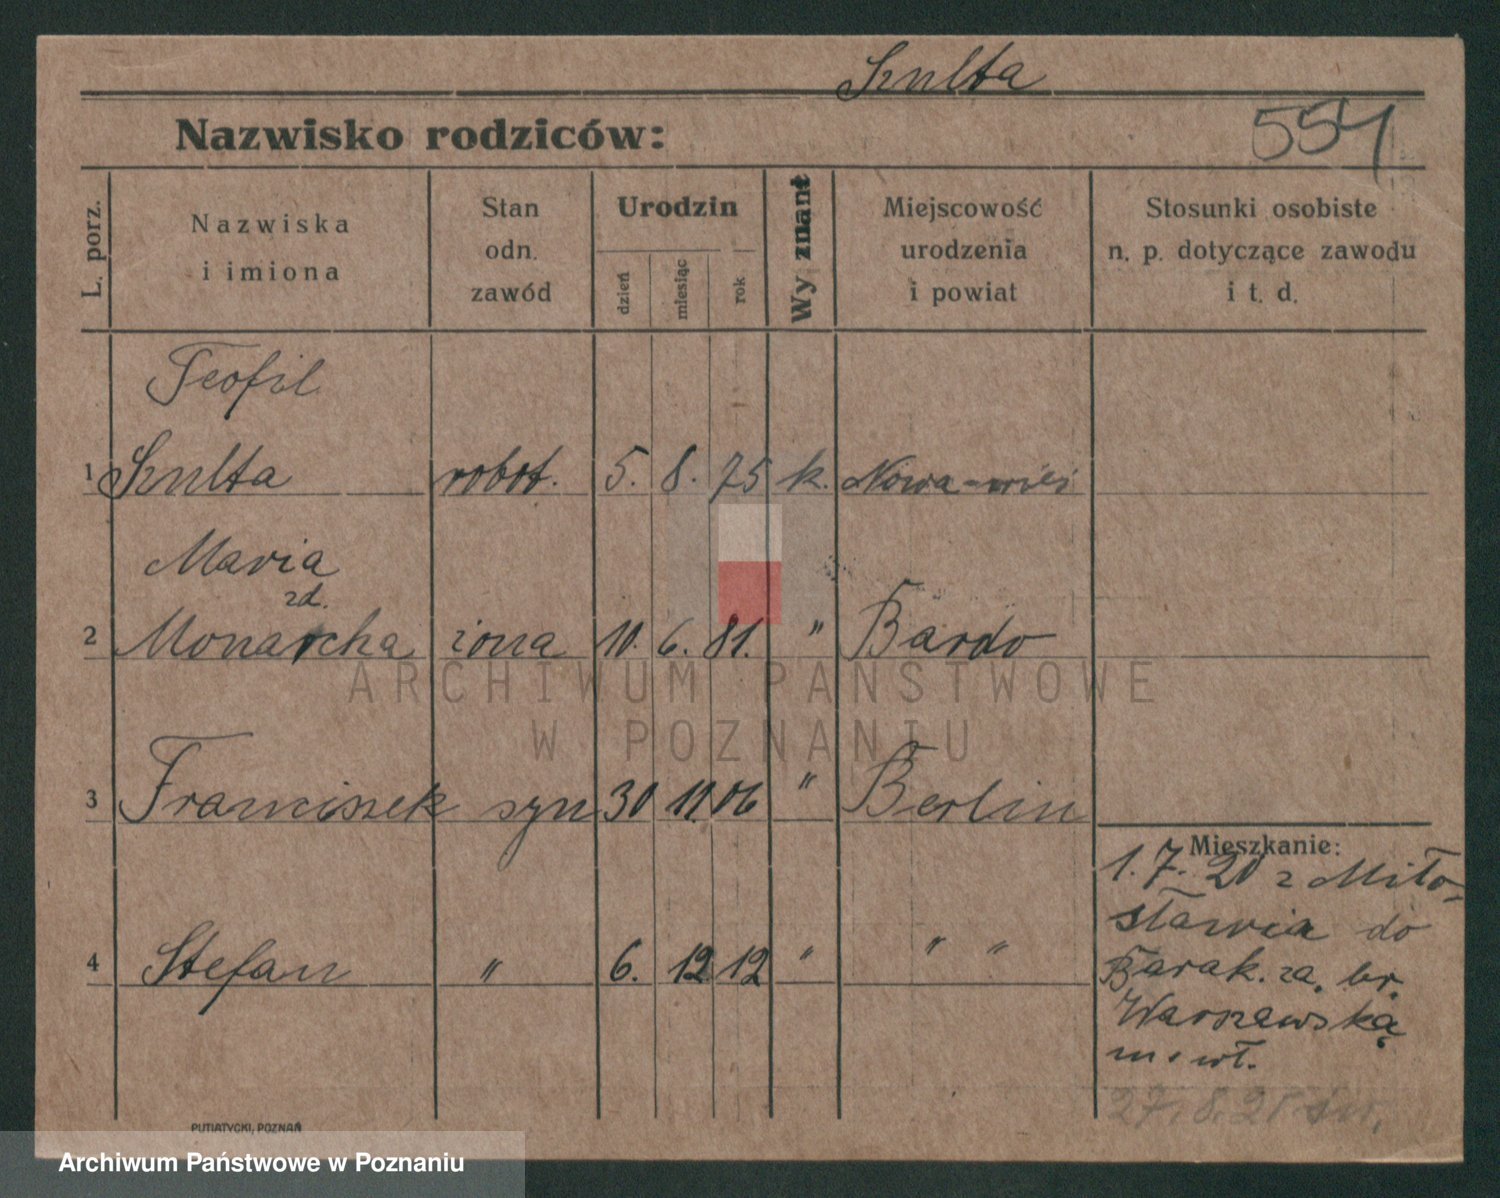 Szulta
Nazwisko rodziców:
554
L. porz.
Nazwiska
i imiona
Stan
odn.
zawód
Urodzin
dzień
miesiąc
rok
Wyznant
Miejscowość
urodzenia
i powiat
Stosunki osobiste
n. p. dotyczące zawodu
i t. d.
Teofil
1 Szulta robot. 5. 8. 75 k. Nowa-wieś
Maria
zd.
2 Monarcha żona 10. 6. 81. " Bardo
3 Franciszek syn 30 11. 06 " Berlin
4 Stefan " 6. 12 12 " " "
Mieszkanie:
1. 7. 20 z Miło-
sławia do
Barak. za. br.
Warszawską
m. wł.
27. 8. 21
PUTIATYCKI, POZNAŃ
ARCHIWUM PAŃSTWOWE
W POZNANIU
Archiwum Państwowe w Poznaniu